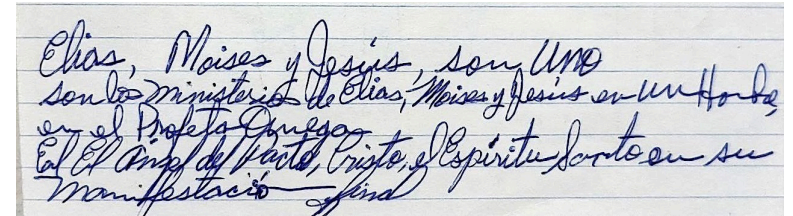 Elias, Moises y Jesús, son UNO
son los ministerios de Elias, Moises y Jesús en un Hombre,
en el Profeta Omega
Es El Ángel del Pacto, Cristo, el Espíritu Santo en su
manifestación final